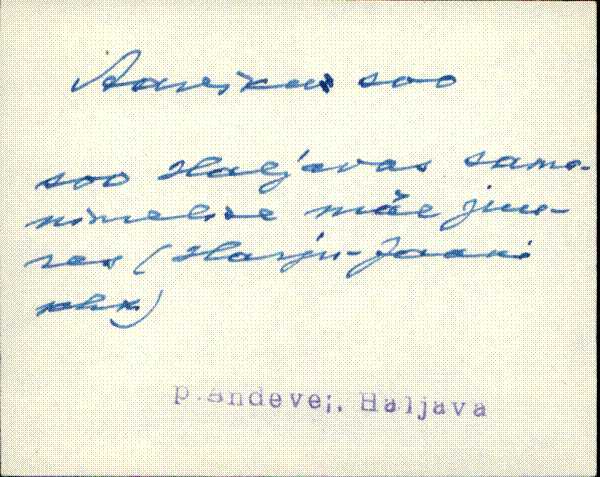 Aarika soo
soo Haljavas sama-
nimelise mäe juu-
res (Harju-Jaani
khk)
p.Andevei, Haljava